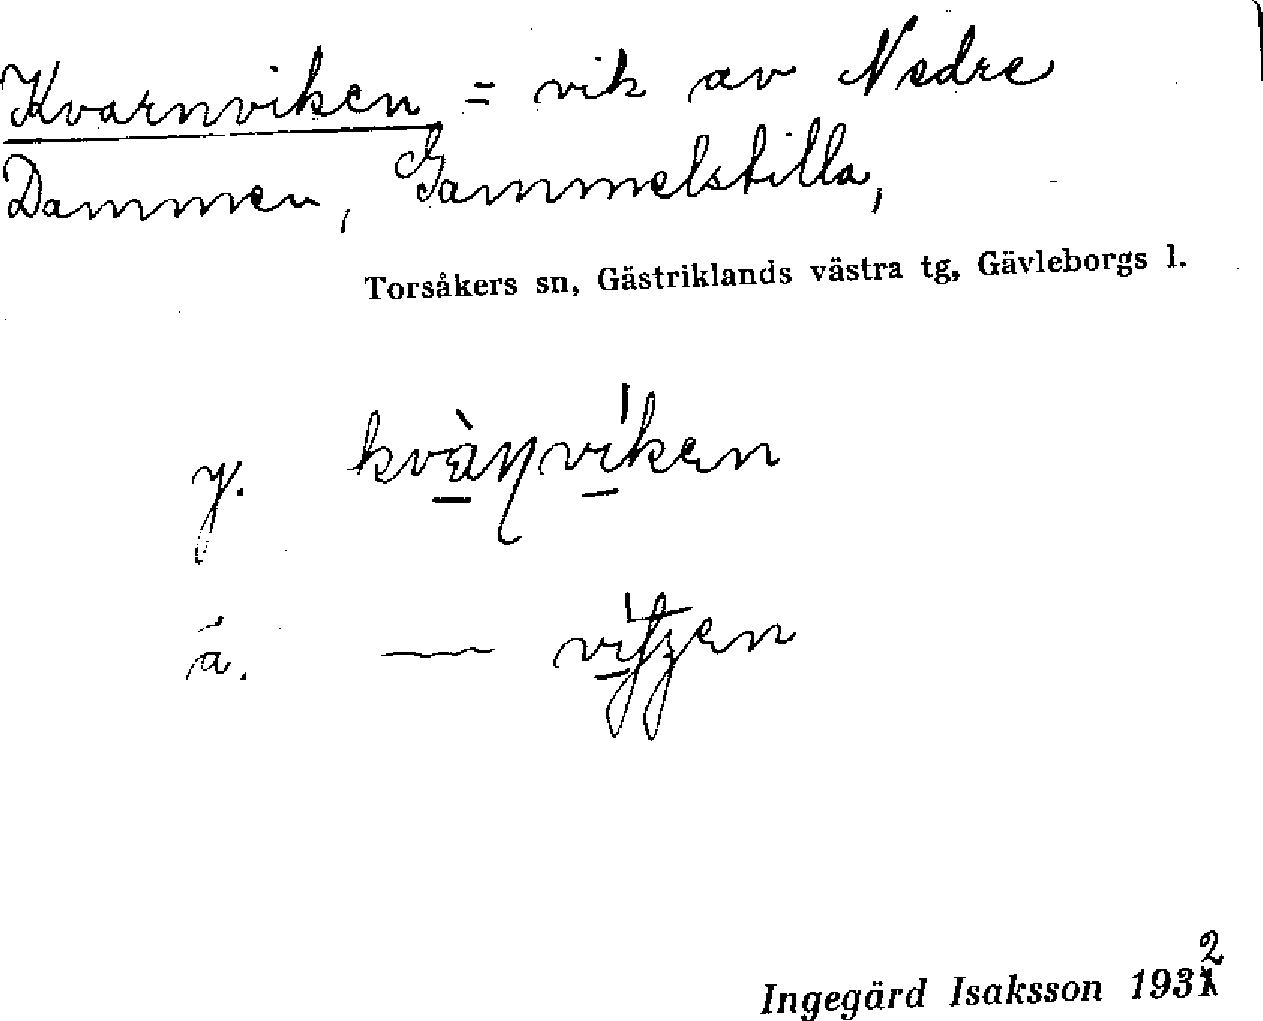 Kvarnviken = vik av Nedre
Dammen, Gammelstilla,
Torsåkers sn, Gästriklands västra tg, Gävleborgs l.
y. kvàɳvíken
ä. —
Ingegärd Isaksson 1932